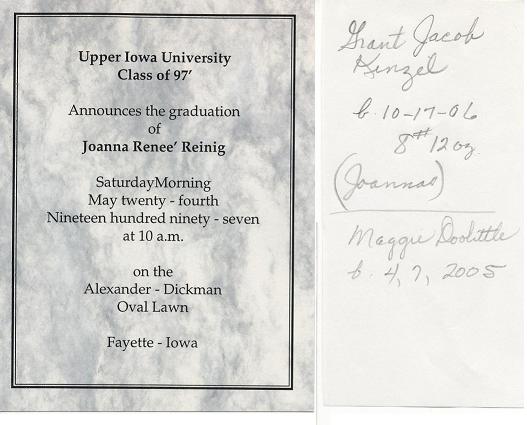 Upper Iowa University
Class of 97'
Announces the graduation
of
Joanna Renee' Reinig
SaturdayMorning
May twenty - fourth
Nineteen hundred ninety - seven
at 10 a.m.
on the
Alexander - Dickman
Oval Lawn
Fayette - Iowa
Grant Jacob
Kinzel
b. 10-17-06
8# 12 oz.
(Joannas)
Maggie Doolittle
b. 4, 7, 2005